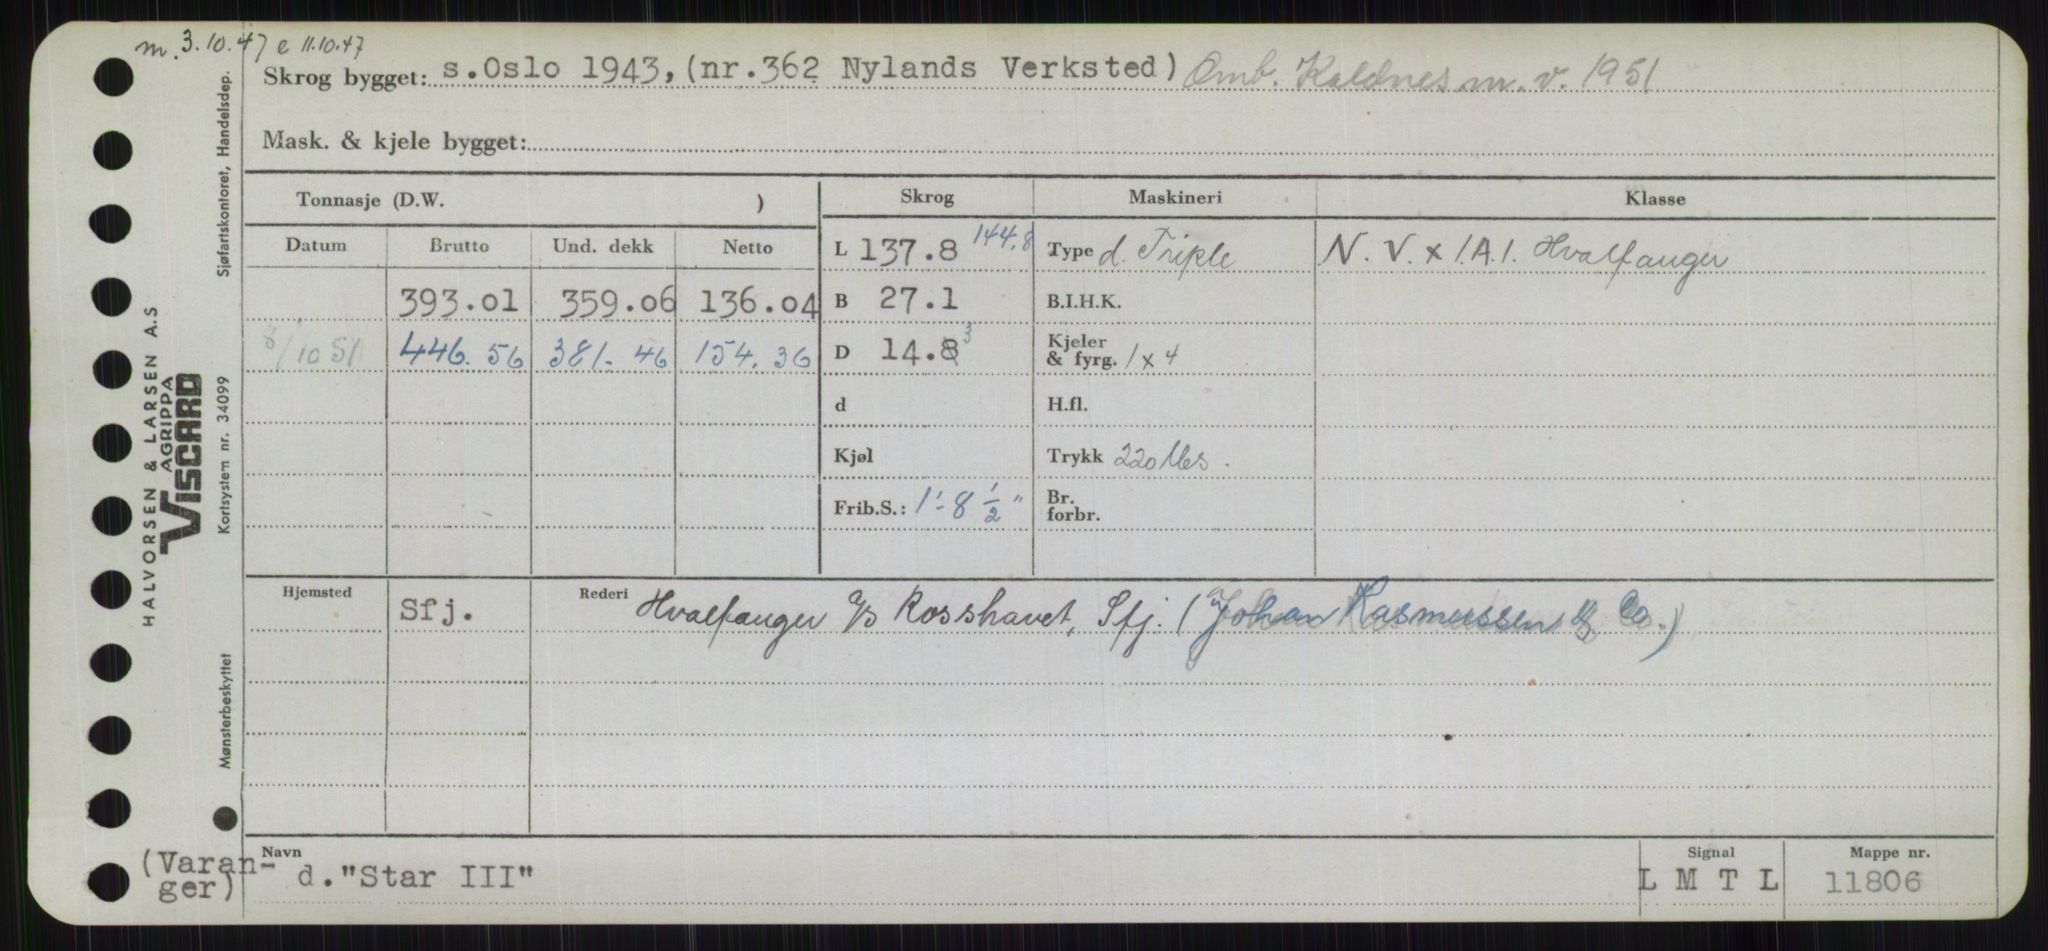 m. 3.10.47 e 11.10.47
Skrog bygget: s.Oslo 1943,(nr.362 Nylands Verksted) Omb. Kaldnes m.v. 1951
Mask. & kjele bygget:
Tonnasje (D.W. )
Skrog
Maskineri
Klasse
Datum Brutto Und. dekk Netto
393.01 359.06 136.04
8/10 51 446.56 381.46 154.36
L 137.8 144.8
B 27.1
D 14.8 3
d
Kjøl
Frib.S.: 1'-8 1/2"
Type d. Triple
B.I.H.K.
Kjeler
& fyrg. 1x4
H.fl.
Trykk 220 lbs.
Br.
forbr.
N.V. x 1.A.1. Hvalfanger
Hjemsted Sfj.
Rederi Hvalfanger A/S Rosshavet, Sfj. (Johan Rasmussen & Co.)
(Varan-
ger)
Navn
d."Star III"
Signal
L M T L
Mappe nr.
11806
Sjøfartskontoret, Handelsdep.
Kortsystem nr. 34099
Mønsterbeskyttet
HALVORSEN & LARSEN A.S
AGRIPPA
VISCARD